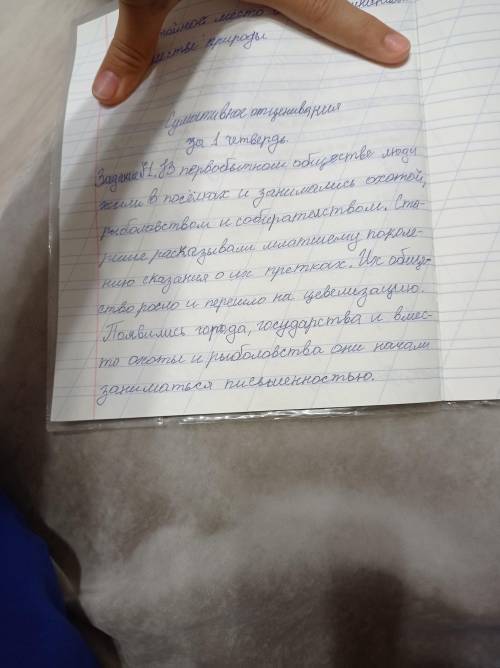 место
природы
Сумативное отценивания
за 1 четверть.
Задание №1. В первобытном обществе люди
жили в посёлках и занимались охотой,
рыболовством и собирательством. Ста-
ршие расказывали млатшему поколе-
нию сказания о их претках. Их обще-
ство росло и перешло на цевелизацию.
Появились города, государства и вмес-
то охоты и рыболовства они начали
заниматься письменностью.